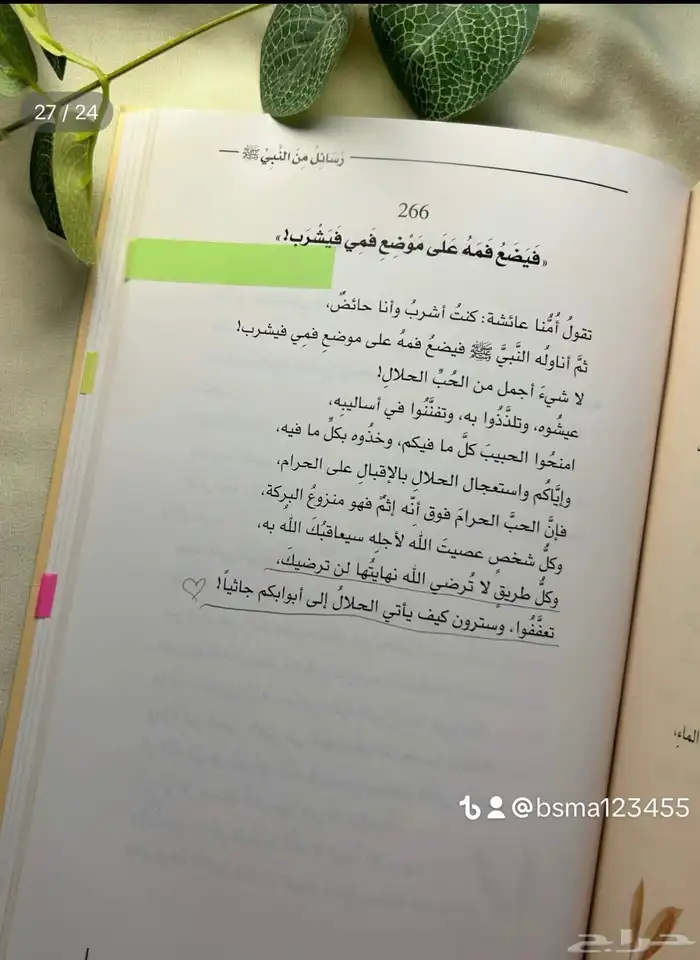 27 / 24
رَسَائِلُ مِنَ النَّبِيِّ ﷺ
266
«فَيَضَعُ فَمَهُ عَلَى مَوْضِعِ فَمِي فَيَشْرَب!»
تقولُ أُمُّنا عائشة: كنتُ أشربُ وأنا حائضٌ،
ثمَّ أناوله النَّبيَّ ﷺ فيضعُ فمهُ على موضعِ فمِي فيشرب!
لا شيءَ أجمل من الحُبِّ الحلالِ!
عيشُوه، وتلذَّذُوا به، وتفنَّنُوا في أساليبِه،
امنحُوا الحبيبَ كلَّ ما فيكم، وخذُوه بكلِّ ما فيه،
وإيَّاكُم واستعجال الحلالِ بالإقبالِ على الحرام،
فإنَّ الحبَّ الحرامَ فوق أنَّه إثمٌ فهو منزوعُ البركة،
وكلُّ شخصٍ عصيتَ الله لأجلِه سيعاقبُكَ اللهُ به،
وكلُّ طريقٍ لا تُرضي الله نهايتُها لن ترضيكَ،
تعفَّفُوا، وسترون كيف يأتي الحلالُ إلى أبوابكم جاثياً!
الماءِ،
@bsma123455
حراج